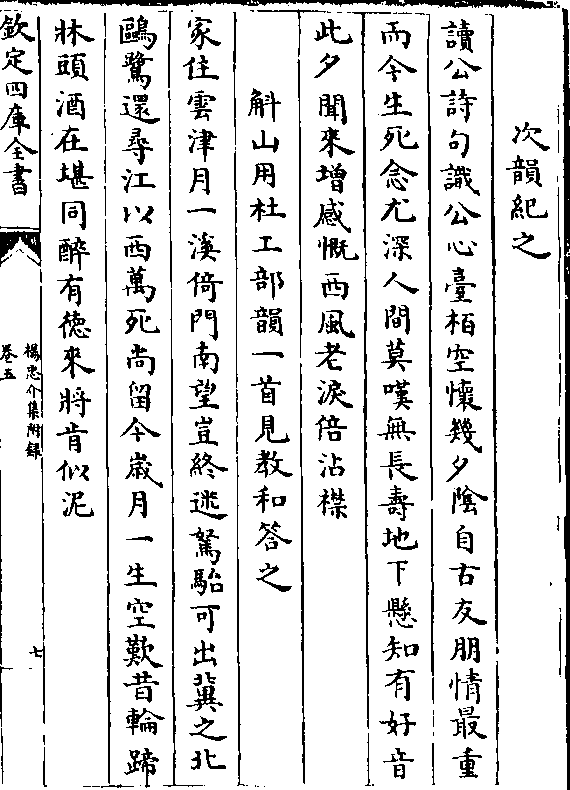 次韻紀之
讀公詩句識公心臺栢空懷幾夕陰自古友朋情最重
而今生死念尤深人間莫嘆無長壽地下懸知有好音
此夕聞來增感慨西風老淚倍沾襟
斛山用杜工部韻一首見教和答之
家住雲津月一溪倚門南望豈終迷駑駘可出冀之北
鷗鷺還尋江以西萬死尚留今歲月一生空歎昔輪蹄
牀頭酒在堪同醉有德來將肯似泥
欽定四庫全書
楊忠介集附録
卷五
七